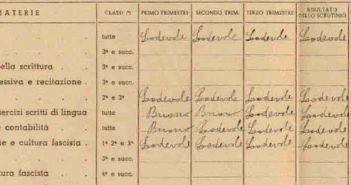 MATERIE CLASSI (*) PRIMO TRIMESTRE SECONDO TRIM. TERZO TRIMESTRE RISULTATO DELLO SCRUTINIO
tutte Lodevole Lodevole Lodevole Lodevole
3ª e succ.
ella scrittura 3ª e succ.
essiva e recitazione 3ª e succ.
2ª e 3ª Lodevole Lodevole Lodevole Lodevole
ercizi scritti di lingua tutte Buono Buono Lodevole Lodevole
contabilità tutte Buono Lodevole Lodevole Lodevole
e e cultura fascista 1ª 2ª e 3ª Lodevole Lodevole Lodevole Lodevole
3ª e succ.
ura fascista 4ª e succ.